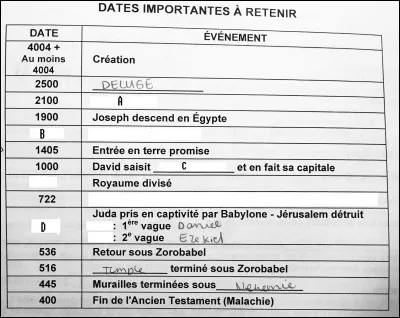 DATES IMPORTANTES À RETENIR
DATE ÉVÉNEMENT
4004 +
Au moins
4004 Création
2500 DELUGE
2100 A
1900 Joseph descend en Égypte
B
1405 Entrée en terre promise
1000 David saisit C et en fait sa capitale
Royaume divisé
722
D Juda pris en captivité par Babylone - Jérusalem détruit
: 1ère vague Daniel
: 2e vague Ezekiel
536 Retour sous Zorobabel
516 Temple terminé sous Zorobabel
445 Murailles terminées sous Nehemie
400 Fin de l'Ancien Testament (Malachie)